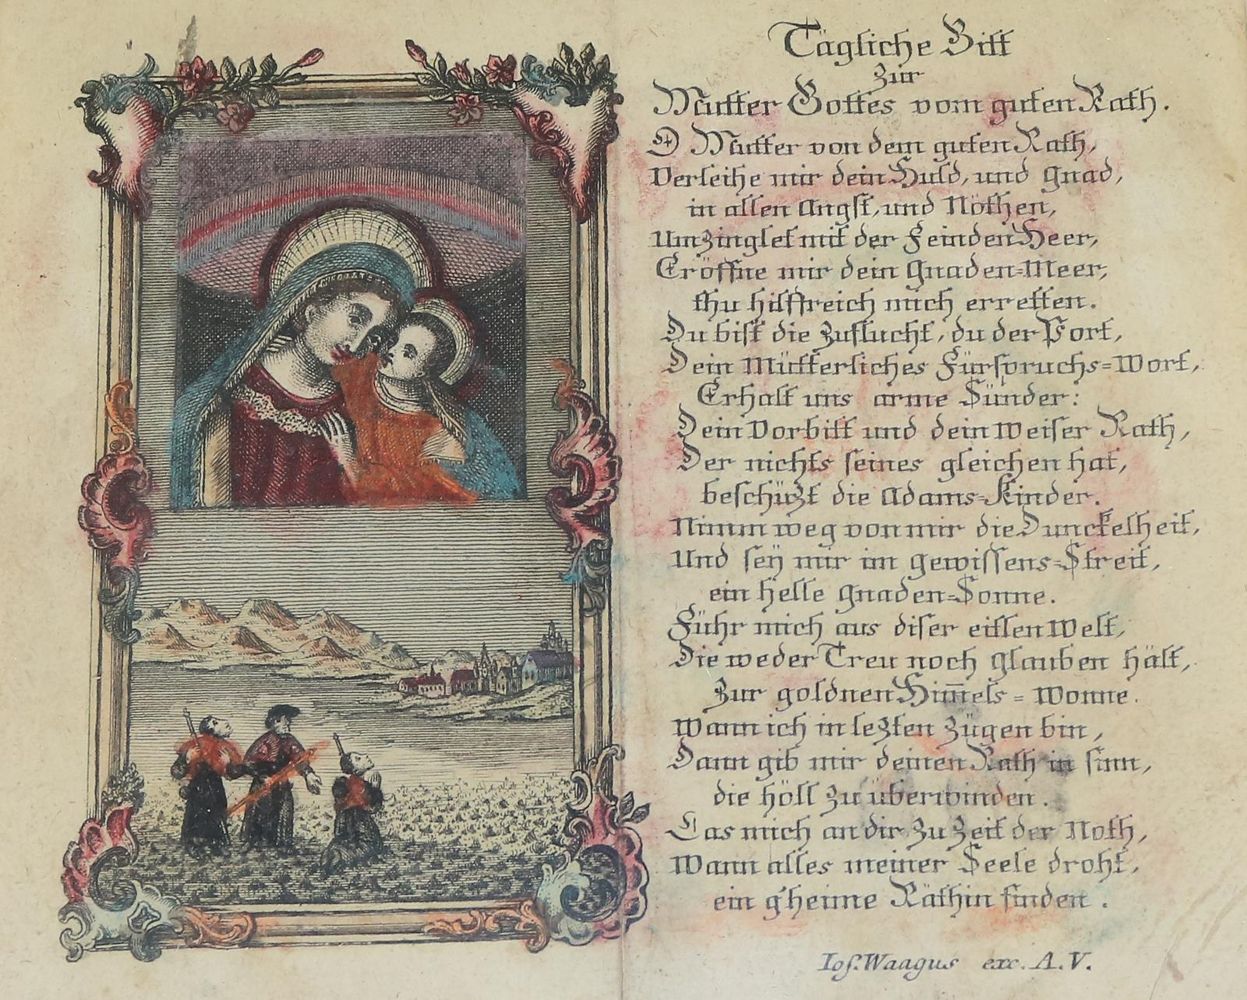 Tägliche Bitt
zur
Mutter Gottes vom guten Rath.
O Mutter von dem guten Rath,
Verleihe mir dein Huld, und gnad,
in allen Angst, und Nöthen,
Umzinglet mit der Feinden Heer,
Eröffne mir dein gnaden-Meer,
thu hilffreich mich erretten.
Du bist die Zuflucht, du der Port,
Dein Mütterliches Fürspruchs-Wort,
Erhalt uns arme Sünder:
Dein Vorbitt und dein weiser Rath,
Der nichts seines gleichen hat,
beschüzt die Adams-kinder.
Nimm weg von mir die Dunckelheit,
Und seÿ mir im gewissens-Streit,
ein helle gnaden-Sonne.
Führ mich aus diser eitlen Welt,
Die weder Treu noch glauben hält,
Zur goldnen Him̅els-wonne.
Wann ich in lezten zügen bin,
Dann gib mir deinen Rath in sinn,
die höll zu überwinden.
Las mich an dir, zu Zeit der Noth,
Wann alles meiner Seele droht,
ein g'heime Räthin finden.
Ios. Waagus exc. A.V.